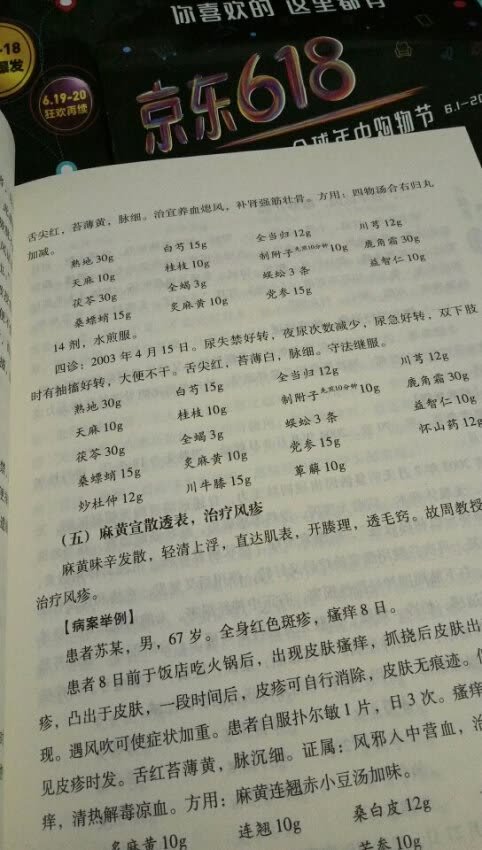 你喜欢的 这里都有
-18
爆发
6.19-20
狂欢再续
京东618
全球年中购物节 6.1-20
舌尖红，苔薄黄，脉细。治宜养血熄风，补肾强筋壮骨。方用：四物汤合右归丸
加减。
熟地 30g 白芍 15g 全当归 12g 川芎 12g
天麻 10g 桂枝 10g 制附子先煎10分钟 10g 鹿角霜 30g
茯苓 30g 全蝎 3g 蜈蚣 3 条 益智仁 10g
桑螵蛸 15g 炙麻黄 10g 党参 15g
14 剂，水煎服。
四诊：2003 年 4 月 15 日。尿失禁好转，夜尿次数减少，尿急好转，双下肢
时有抽搐好转，大便不干。舌尖红，苔薄白，脉细。守法继服。
熟地 30g 白芍 15g 全当归 12g 川芎 12g
天麻 10g 桂枝 10g 制附子先煎10分钟 10g 鹿角霜 30g
茯苓 30g 全蝎 3g 蜈蚣 3 条 益智仁 10g
桑螵蛸 15g 炙麻黄 10g 党参 15g 怀山药 12g
炒杜仲 12g 川牛膝 15g 萆薢 10g
（五）麻黄宣散透表，治疗风疹
麻黄味辛发散，轻清上浮，直达肌表，开腠理，透毛窍。故周教授
治疗风疹。
【病案举例】
患者苏某，男，67 岁。全身红色斑疹，瘙痒 8 日。
患者 8 日前于饭店吃火锅后，出现皮肤瘙痒，抓挠后皮肤出
疹，凸出于皮肤，一段时间后，皮疹可自行消除，皮肤无痕迹。
现。遇风吹可使症状加重。患者自服扑尔敏 1 片，日 3 次。瘙痒
见皮疹时发。舌红苔薄黄，脉沉细。证属：风邪入中营血，治
痒，清热解毒凉血。方用：麻黄连翘赤小豆汤加味。
炙麻黄 10g 连翘 10g 桑白皮 12g
苦参 10g